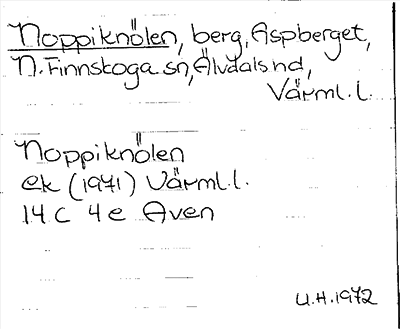 Noppiknölen, berg, Aspberget,
N. Finnskoga sn, Älvdals hd,
Värml. l.
Noppiknölen
ek (1971) Värml. l.
14 C 4 e Aven
U.H. 1972